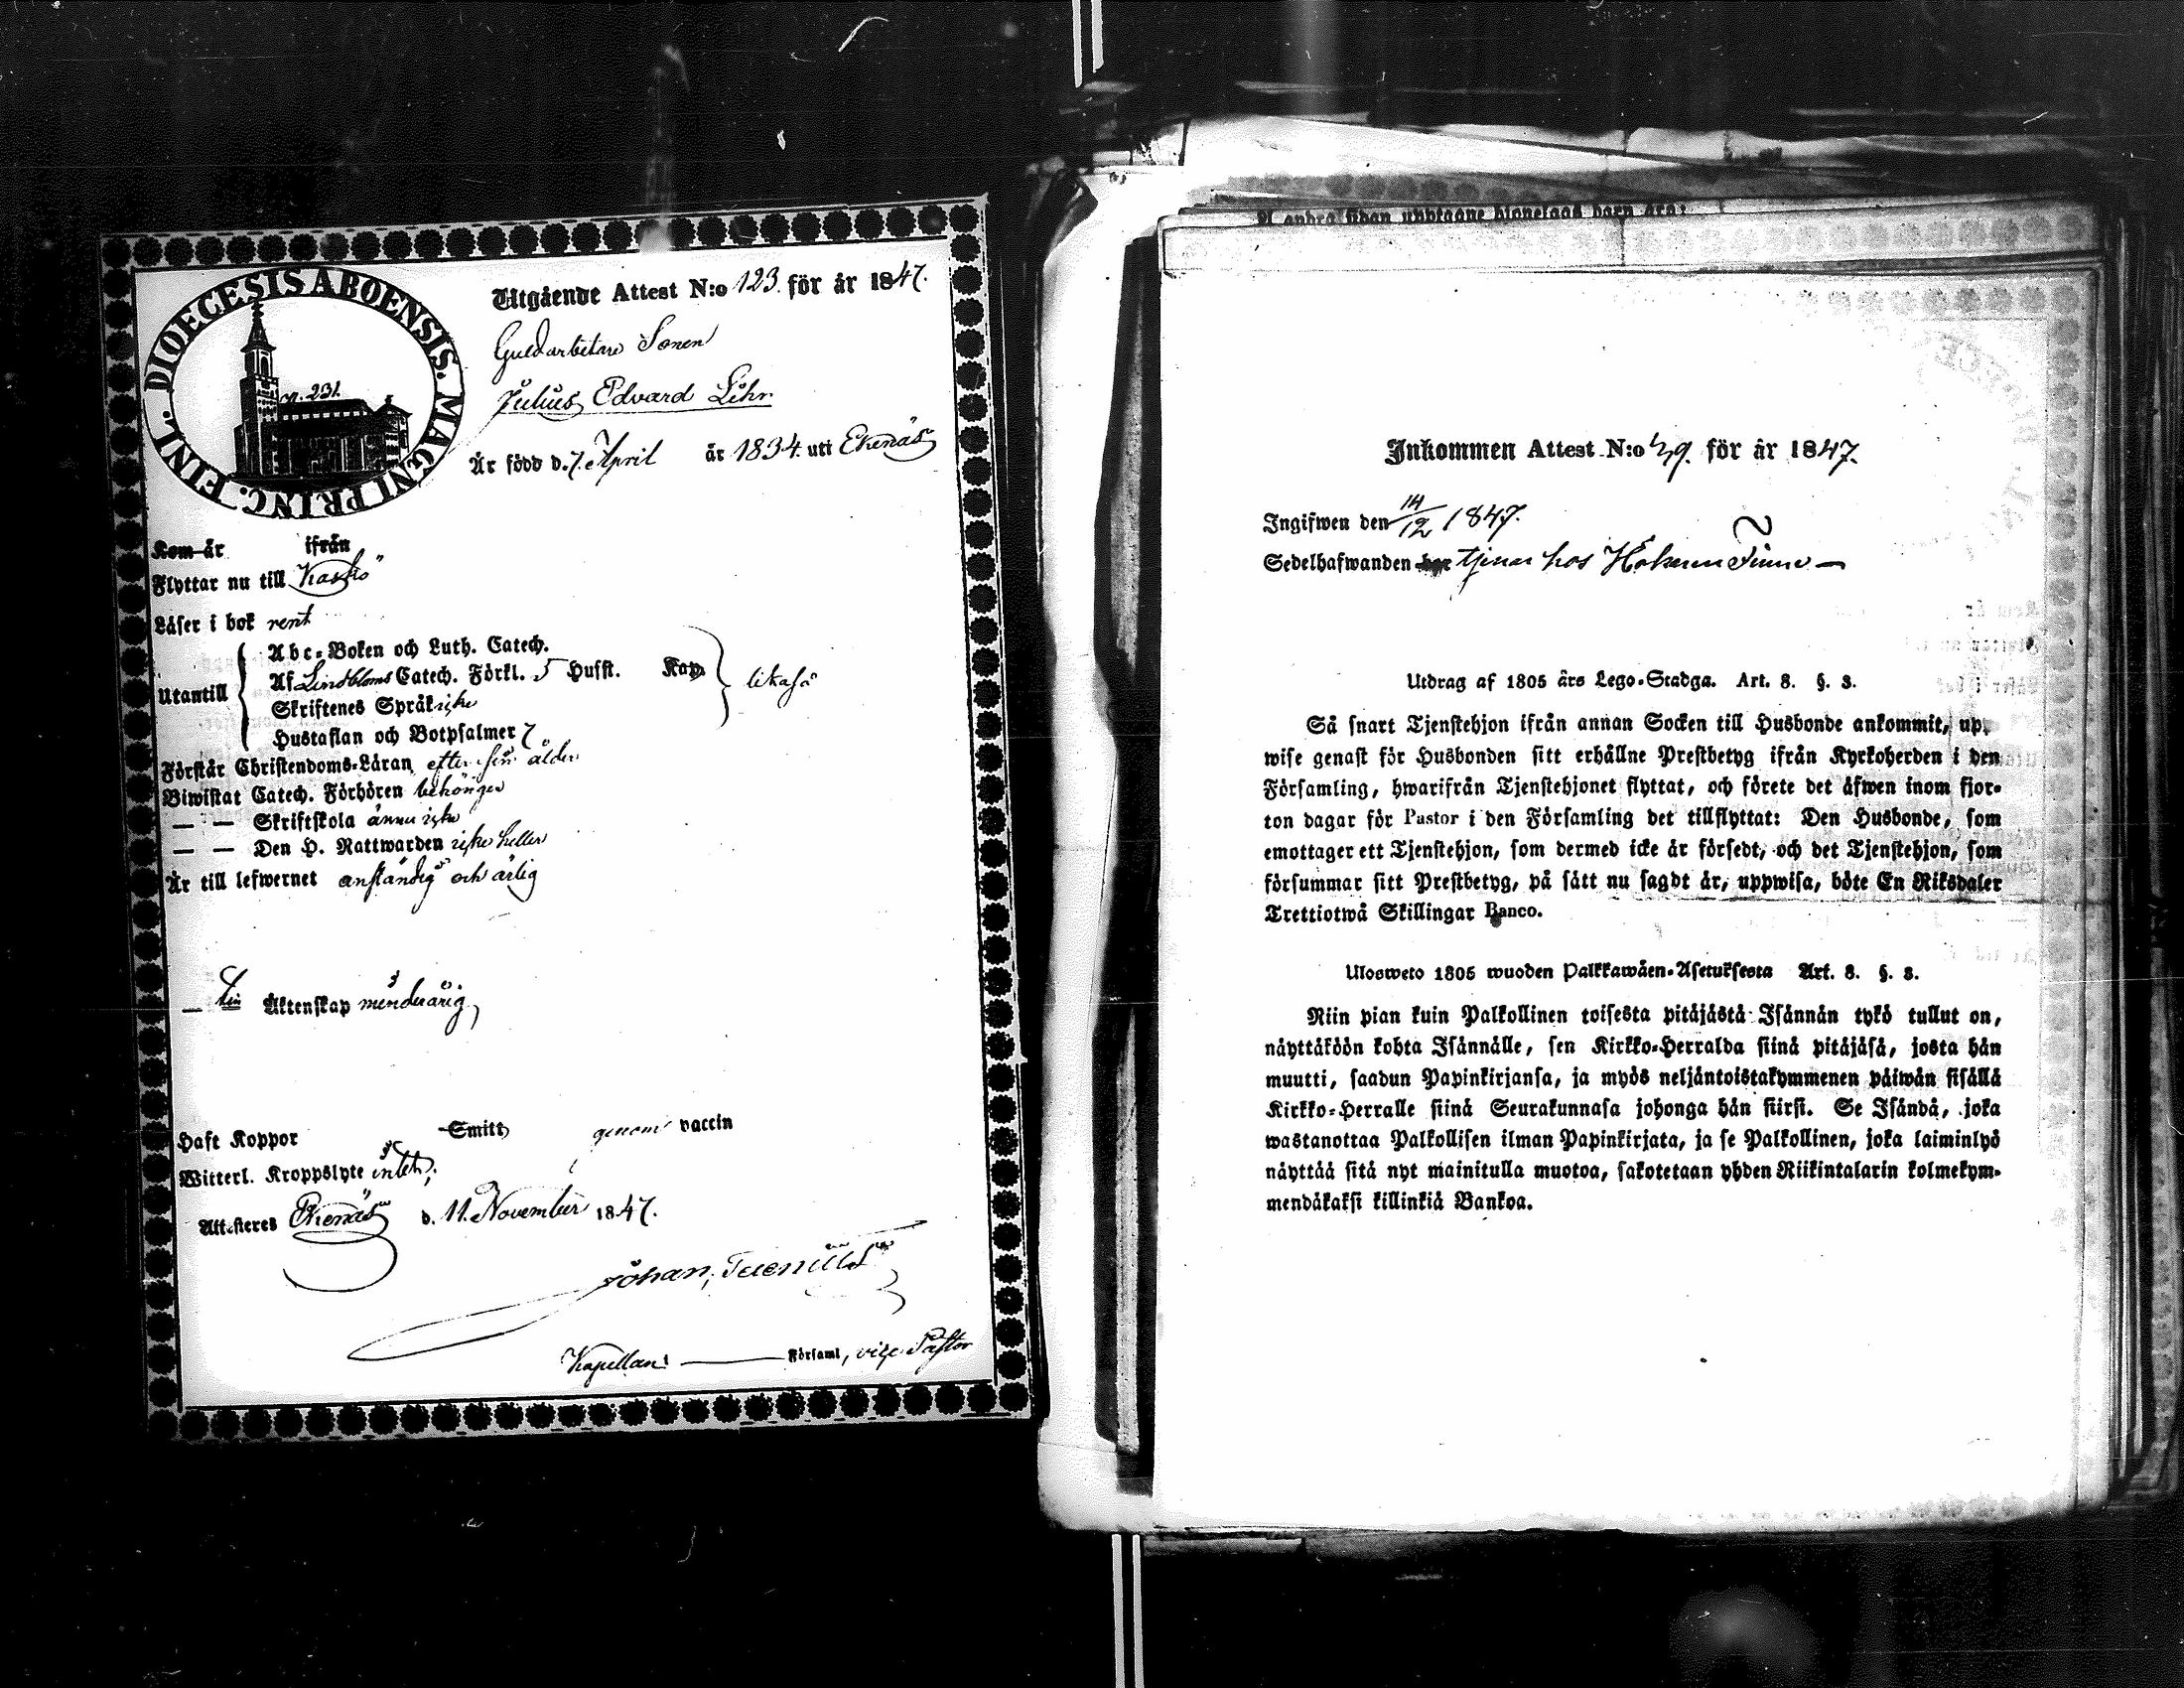 DIOECESIS ABOENSIS. MAGNI PRINC. FINL.
p. 231.
Utgående Attest N:o 123. för år 1847.
Guldarbetare Sonen
Julius Edvard Lihr.
Är född d. 7. April år 1834. uti Ekenäs
Kom år ifrån
Flyttar nu till Kaskö
Läser i bok rent
Utantill
Abc-Boken och Luth. Catech.
Af Lindbloms Catech. Förkl. 5 Hufst. Kap. likaså
Skriftenes Språk icke
Hustaflan och Botpsalmer 7
Förstår Christendoms-Läran efter sin ålder
Biwistat Catech. Förhören behörigen
— — Skriftskola ännu icke
— — Den H. Nattwarden icke heller
Är till lefwernet anständig och ärlig
— till Äktenskap minderårig
Haft Koppor Smitt genom vaccin
Witterl. Kroppslyte intet;
Attesteras Ekenäs d. 11. November 1847.
Johan
Kapellan i — Församl, vice Pastor
A andra sidan upptagne
Inkommen Attest N:o 39. för år 1847.
Ingifwen den 14/12 1847.
Sedelhafwanden bor tjenar hos
Utdrag af 1805 års Lego-Stadga. Art. 8. §. 3.
Så snart Tjenstehjon ifrån annan Socken till Husbonde ankommit, up-
wise genast för Husbonden sitt erhållne Prestbetyg ifrån Kyrkoherden i den
Församling, hwarifrån Tjenstehjonet flyttat, och förete det äfwen inom fjor-
ton dagar för Pastor i den Församling det tillflyttat: Den Husbonde, som
emottager ett Tjenstehjon, som dermed icke är försedt, och det Tjenstehjon, som
försummar sitt Prestbetyg, på sätt nu sagdt är, uppwisa, böte En Riksdaler
Trettiotwå Skillingar Banco.
Ulosweto 1805 wuoden Palkkawäen-Asetuksesta Art. 8. §. 3.
Niin pian kuin Palkollinen toisesta pitäjästä Isännän tykö tullut on,
näyttäköön kohta Isännälle, sen Kirkko-Herralda siinä pitäjäsä, josta hän
muutti, saadun Papinkirjansa, ja myös neljäntoistakymmenen päiwän sisällä
Kirkko-Herralle siinä Seurakunnasa johonga hän siirsi. Se Isändä, joka
wastanottaa Palkollisen ilman Papinkirjata, ja se Palkollinen, joka laiminlyö
näyttää sitä nyt mainitulla muotoa, sakotetaan yhden Riikintalarin kolmekym-
mendäkaksi killinkiä Bankoa.